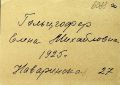 Гольцгофер
Елена Михайловна
1925 г.
Наваринская 27